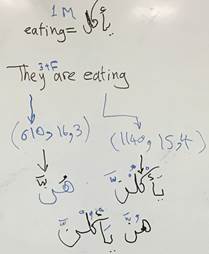 1 M
eating= يأكل
3+F
They are eating
(610, 16,3) (1140, 15,4)
هُنَّ يَأْكُلْنَّ
هُنَّ يَأْكُلْنَّ